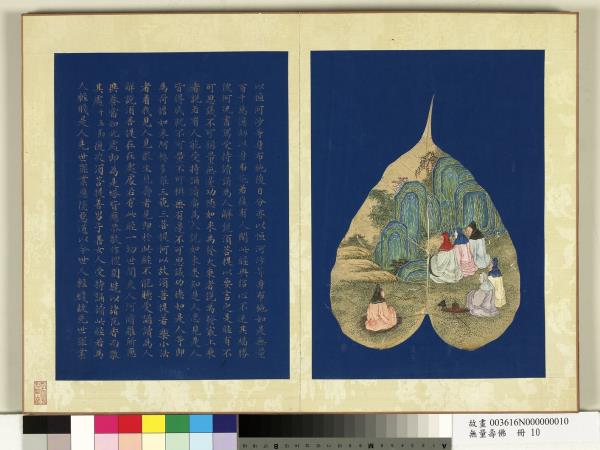 以恒河沙等身布施後日分亦以恒河沙等身布施如是無量
百千萬億劫以身布施若復有人聞此經典信心不逆其福勝
彼何況書寫受持讀誦為人解說須菩提以要言之是經有不
可思議不可稱量無邊功德如來為發大乘者說為發最上乘
者說若有人能受持讀誦廣為人說如來悉知是人悉見是人
皆得成就不可量不可稱無有邊不可思議功德如是人等即
為荷擔如來阿耨多羅三藐三菩提何以故須菩提若樂小法
者著我見人見眾生見壽者見即於此經不能聽受讀誦為人
解說須菩提在在處處若有此經一切世間天人阿修羅所應
供養當知此處即為是塔皆應恭敬作禮圍繞以諸花香而散
其處十五復次須菩提善男子善女人受持讀誦此經若為
人輕賤是人先世罪業應墮惡道以今世人輕賤故先世罪業
故畫 003616N000000010
無量壽佛 冊 10